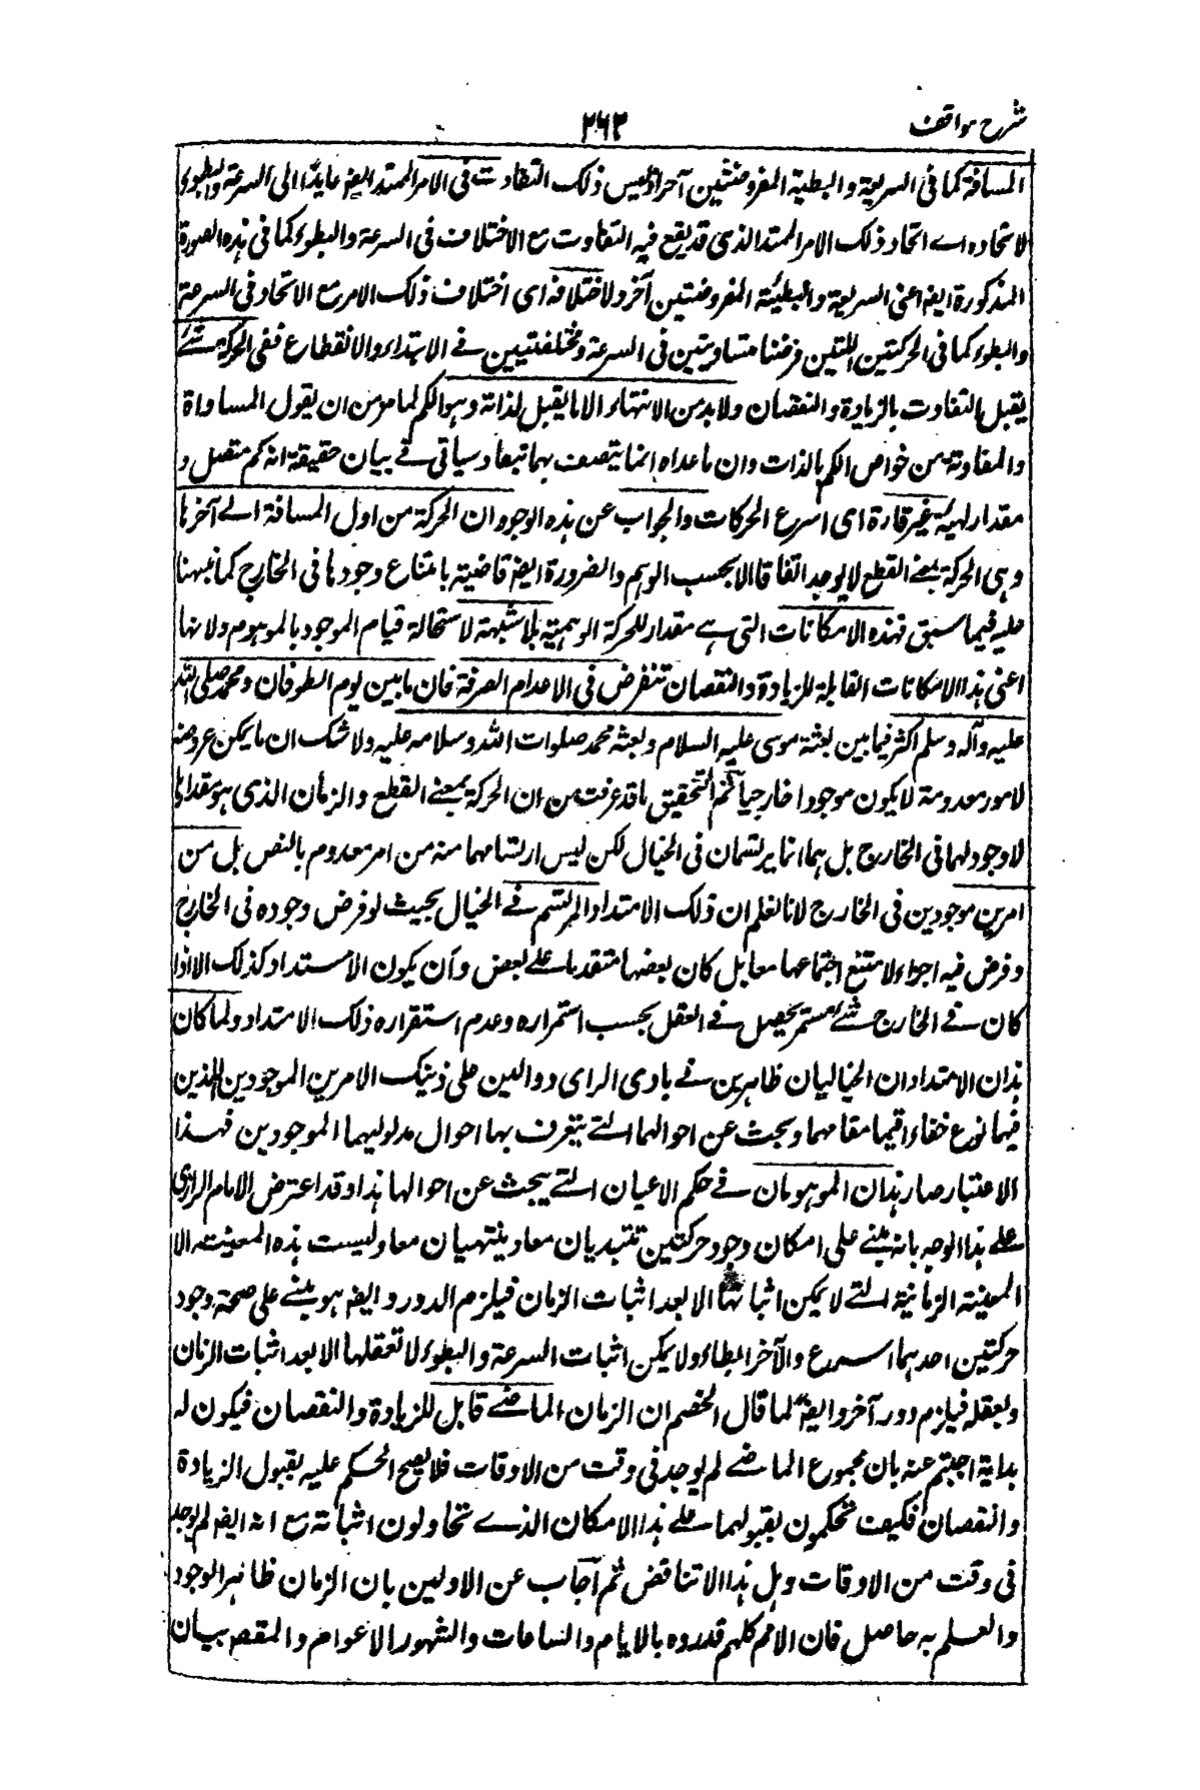 شرح مواقف
٢٦٢
المسافة كما فى السريعة والبطيئة المفروضتين آخرا وليس ذلك التفاوت فى الامر الممتد ايضا عايدًا الى السرعة والبطوء
لاتحاده اے اتحاد ذلك الامر الممتد الذى قد يقع فيه التفاوت مع الاختلاف فى السرعة والبطوء كما فى هذه الصورة
المذكورة ايضا اعنى السريعة والبطيئة المفروضتين آخر ولاختلافه اى اختلاف ذلك الامر مع الاتحاد فى السرعة
والبطوء كما فى الحركتين اللتين فرضنا متساويتين فى السرعة ومختلفتين فے الابتداء والانقطاع ففى الحركة شئے
يقبل التفاوت بالزيادة والنقصان ولا بد من الانتهاء الا ما يقبل لذاته وهو الكم لما مر من ان يقول المساواة
والمفاوتة من خواص الكم بالذات وان ما عداه انما يتصف بهما تبعا وسياتى فے بيان حقيقة انه كم متصل و
مقدار لهيئة غير قارة اى اسرع الحركات والجواب عن هذه الوجوه ان الحركة من اول المسافة الے آخرها
وهى الحركة بمعنے القطع لا يوجد اتفاقا الا بحسب الوهم والضرورة ايضا قاضية بامتناع وجودها فى الخارج كما نبهنا
عليه فيما سبق فهذه الامكانات التى هے مقدار للحركة الوهمية بلا شبهة لاستحالة قيام الموجود بالموهوم ولانها
اعنى هذا الامكانات القابلة للزيادة والنقصان تنفرض فى الاعدام الصرفة فان ما بين يوم الطوفان ومحمد صلى الله
عليه وآله وسلم اكثر فيما بين بعثة موسى عليه السلام وبعثة محمد صلوات الله وسلامه عليه ولا شك ان ما يمكن عروضه
لامور معدومة لا يكون موجودا خارجيا ثم التحقيق ما قد عرفت من ان الحركة بمعنے القطع والزمان الذى هو مقدارها
لا وجود لهما فى الخارج بل هما انما يرتسمان فى الخيال لكن ليس ارتسامهما منه من امر معدوم بالنص بل من
امرين موجودين فى الخارج لانا نعلم ان ذلك الامتداد المرتسم فے الخيال بحيث لو فرض وجوده فى الخارج
وفرض فيه اجزاء لامتنع اجتماعها معا بل كان بعضها متقدما علے بعض وان يكون الامتداد كذلك الا اذا
كان فے الخارج شئے مستمر يحصل فے العقل بحسب استمراره وعدم استقراره ذلك الامتداد ولما كان
هذان الامتدادان الخياليان ظاهرين فے بادى الراى ودالين على ذينك الامرين الموجودين اللذين
فيهما نوع خفاء اقيما مقامهما وبحث عن احوالهما التے يتعرف بها احوال مدلوليهما الموجودين فهذا
الاعتبار صار هذان الموهومان فے حكم الاعيان التے يبحث عن احوالها هذا وقد اعترض الامام الرازى
علے هذا الوجه بانه مبنے على امكان وجود حركتين تبتديان معا وينتهيان معا وليست هذه المعية الا
المعية الزمانية التے لا يمكن اثباتها الا بعد اثبات الزمان فيلزم الدور وايضا هو مبنے على صحة وجود
حركتين احدهما اسرع والآخر ابطاء ولا يمكن اثبات السرعة والبطوء لا تعقلها الا بعد اثبات الزمان
وبعقله فيلزم دور آخر وايضا لما قال الخصم ان الزمان الماضے قابل للزيادة والنقصان فيكون له
بداية اجبتم عنه بان مجموع الماضے لم يوجد فى وقت من الاوقات فلا يصح الحكم عليه بقبول الزيادة
والنقصان فكيف تحكمون بقبولهما علے هذا الامكان الذے تحاولون اثباته مع انه ايضا لم يوجد
فى وقت من الاوقات وهل هذا الا تناقض ثم آجاب عن الاولين بان الزمان ظاهر الوجود
والعلم به حاصل فان الامم كلهم قدروه بالايام والساعات والشهور الاعوام والمقصد بيان